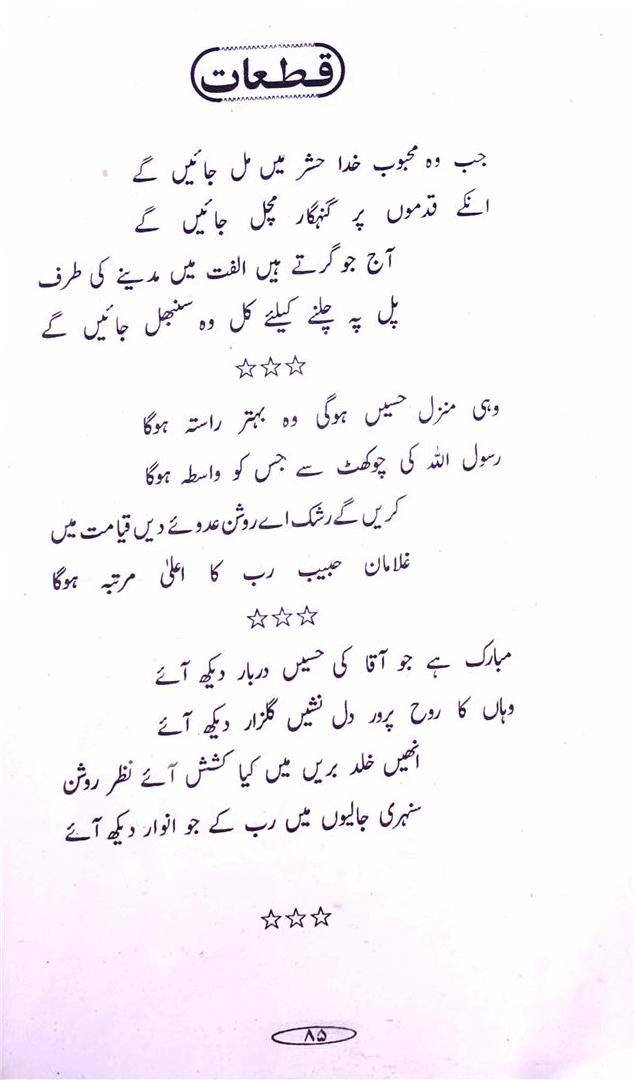 قطعات
جب وہ محبوب خدا حشر میں مل جائیں گے
انکے قدموں پر گنہگار مچل جائیں گے
آج جو گرتے ہیں الفت میں مدینے کی طرف
پل پہ چلنے کیلئے کل وہ سنبھل جائیں گے
☆☆☆
وہی منزل حسیں ہوگی وہ بہتر راستہ ہوگا
رسول اللہ کی چوکھٹ سے جس کو واسطہ ہوگا
کریں گے رشک اے روشن عدوئے دیں قیامت میں
غلامان حبیب رب کا اعلیٰ مرتبہ ہوگا
☆☆☆
مبارک ہے جو آقا کی حسیں دربار دیکھ آئے
وہاں کا روح پرور دل نشیں گلزار دیکھ آئے
انھیں خلد بریں میں کیا کشش آئے نظر روشن
سنہری جالیوں میں رب کے جو انوار دیکھ آئے
☆☆☆
۸۵